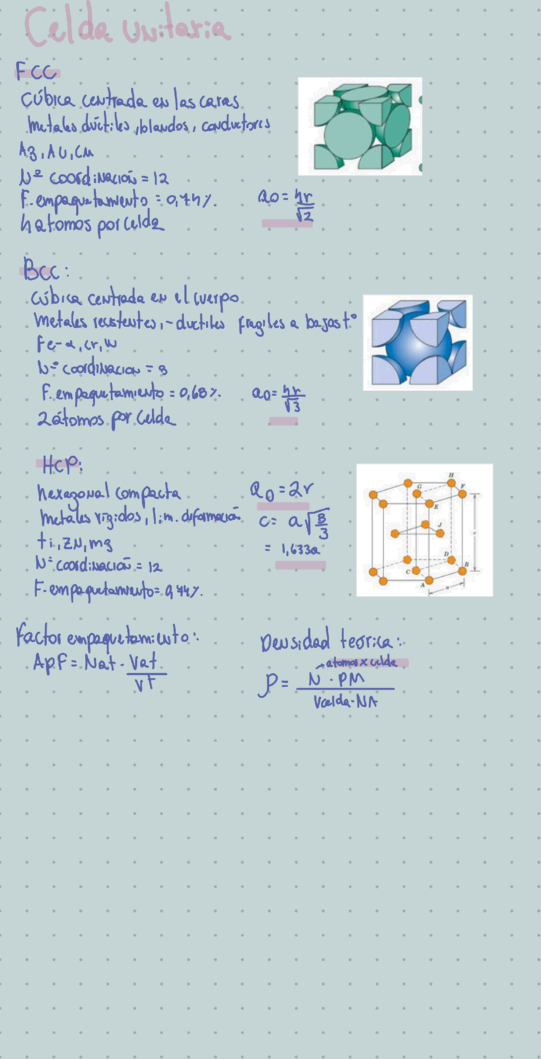 Celda unitaria
FCC
Cúbica centrada en las caras
Metales dúctiles, blandos, conductores
Ag, AU, CU
Nº coordinación = 12
F. empaquetamiento = 0,74%.
a0 = 4r/√2
4 atomos por celda
BCC:
Cúbica centrada en el cuerpo
Metales resistentes, - ductiles fragiles a bajas tº
Fe-α, Cr, W
Nº coordinacion = 8
F. empaquetamiento = 0,68%.
a0 = 4r/√3
2 átomos por celda
HCP:
hexagonal compacta
a0 = 2r
Metales rígidos, lim. deformación
c = a√8/3
ti, ZN, mg
= 1,633a
Nº coordinación = 12
F. empaquetamiento = 0,74%.
H
G
F
E
J
I
c
D
C
B
A
a
Factor empaquetamiento:
Densidad teorica:
ApF = Nat · Vat/VT
atomos x celda
ρ = N · PM/Vcelda·NA